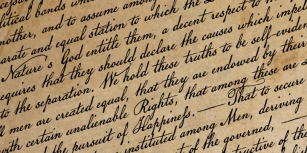 litical bands which
nother, and to assume among
arate and equal station to which the L
Nature's God entitle them, a decent respect to the
equires that they should declare the causes which impel
to the separation. We hold these truths to be self-eviden
ll men are created equal, that they are endowed by their
with certain unalienable Rights, that among these are L
the pursuit of Happiness. — That to secur
instituted among Men, deriving
of the governed, —
structive of t